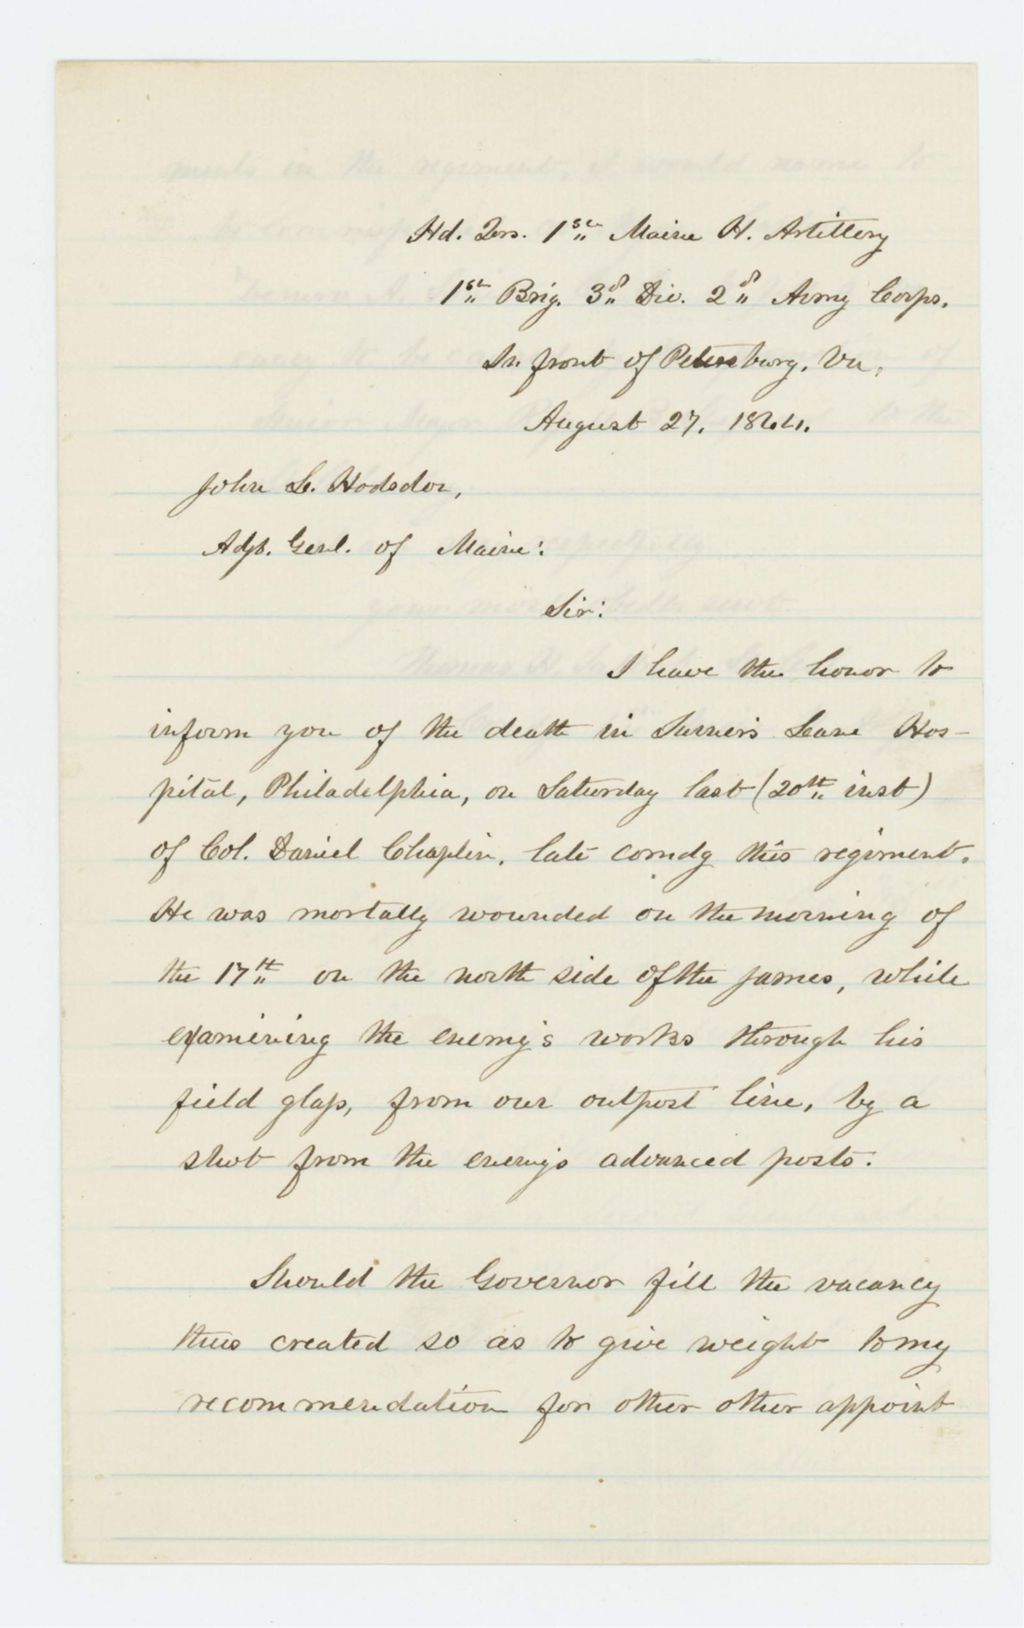 Hd. Qrs. 1st Maine H. Artillery
1st Brig. 3d Div. 2d Army Corps.
In front of Petersburg, Va.,
August 27, 1864.
John L. Hodsdon,
Adjt. Genl. of Maine:
Sir:
I have the honor to
inform you of the death in Turner's Lane Hos-
pital, Philadelphia, on Saturday last (20th inst)
of Col. Daniel Chaplin, late comdg this regiment.
He was mortally wounded on the morning of
the 17th on the north side of the James, while
examining the enemy's works through his
field glass, from our outpost line, by a
shot from the enemy's advanced posts.
Should the Governor fill the vacancy
thus created so as to give weight to my
recommendation for other other appoint